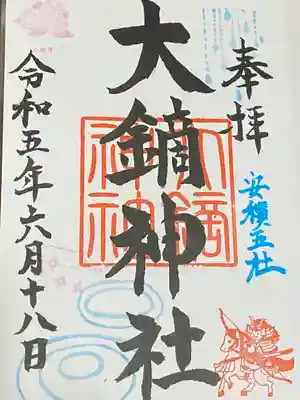 奉拝
安積五社
大鏑神社
令和五年六月十八日